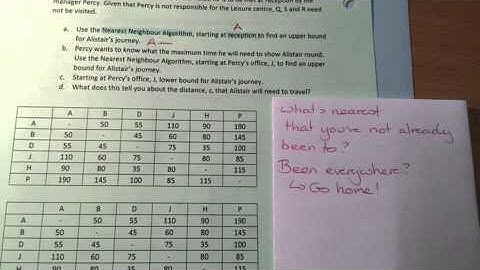 manager Percy. Given that Percy is not responsible for the Leisure centre, Q, S and R need
not be visited.
A
a. Use the Nearest Neighbour Algorithm, starting at reception to find an upper bound
for Alistair's journey. A—
b. Percy wants to know what the maximum time he will need to show Alistair round.
Use the Nearest Neighbour Algorithm, starting at Percy's office, J, to find an upper
bound for Alistair's journey.
c. Starting at Percy's office, J, lower bound for Alistair's journey.
d. What does this tell you about the distance, c, that Alistair will need to travel?
A B D J H P
A - 50 55 110 90 190
B 50 - 45 60 80 145
D 55 45 - 75 35 100
J 110 60 75 - 80 85
H 90 80 35 80 - 115
P 190 145 100 85 115 -
A B D J H P
A - 50 55 110 90 190
B 50 - 45 60 80 145
D 55 45 - 75 35 100
J 110 60 75 - 80 85
H 90 80 35 80 - 115
What's nearest
that you've not already
been to?
Been everywhere?
↳ Go home!